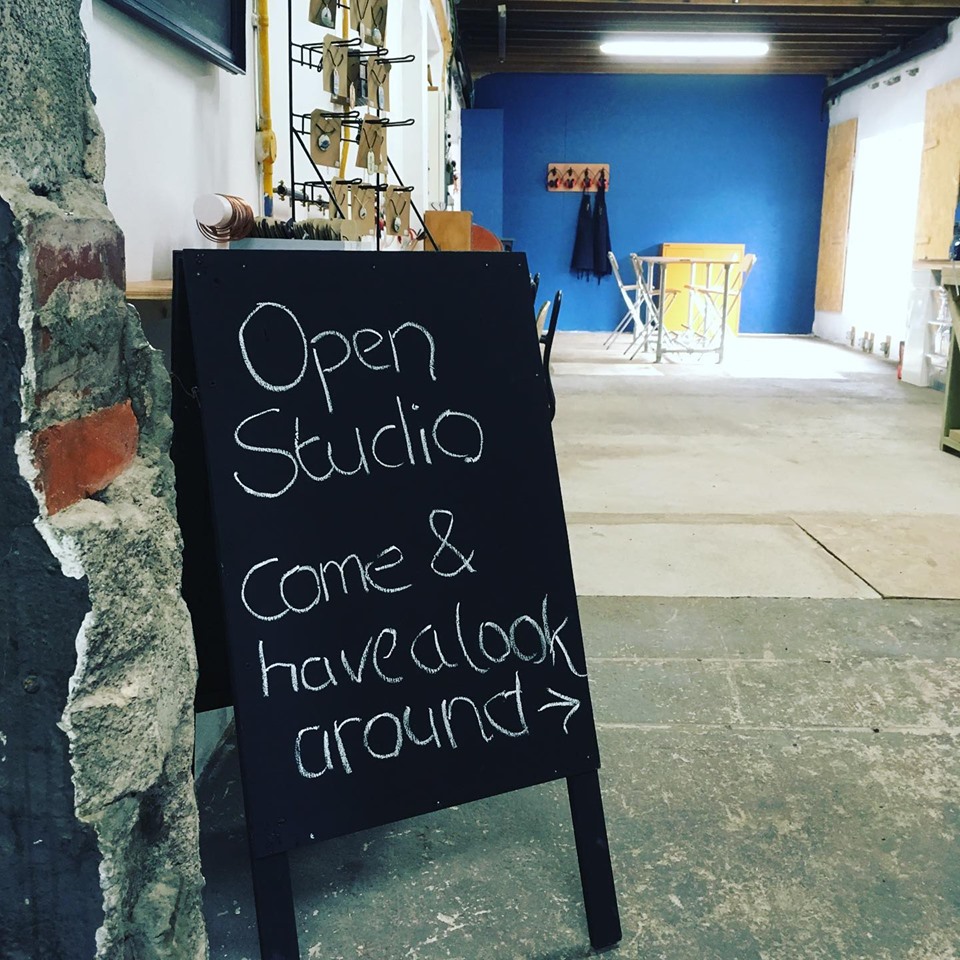 Open
Studio
Come &
have a look
around →